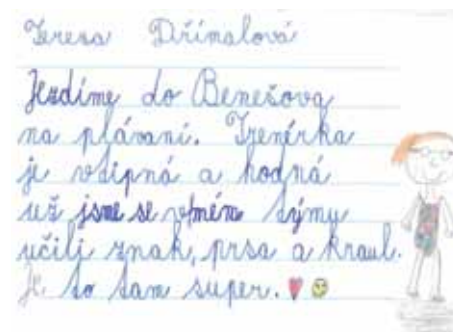 Tereza Dřímalová
Jezdíme do Benešova
na plávaní. Trenérka
je vtipná a hodná
už jsme se v mém týmu
učili znak, prsa a kraul.
Je to tam super.